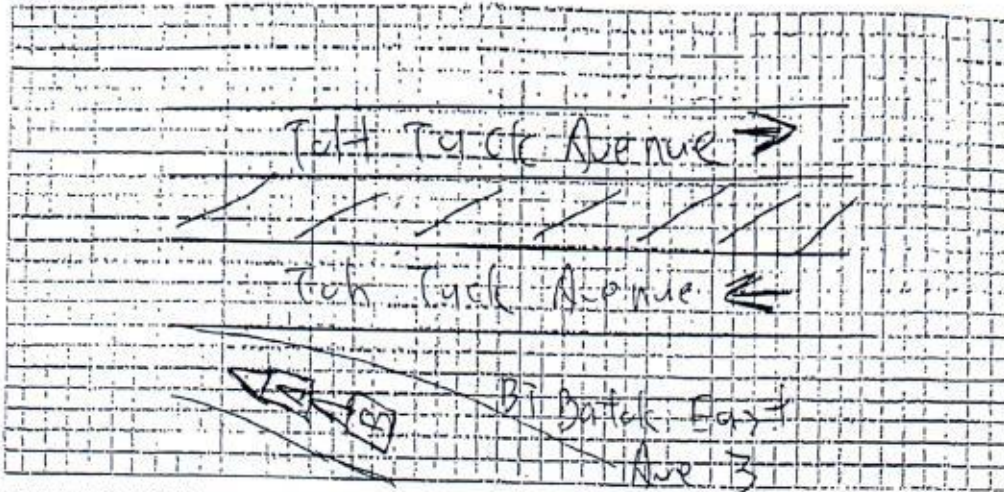 Toh Tuck Avenue
Toh Tuck Avenue
A
B
Bt Batok East
Ave 3